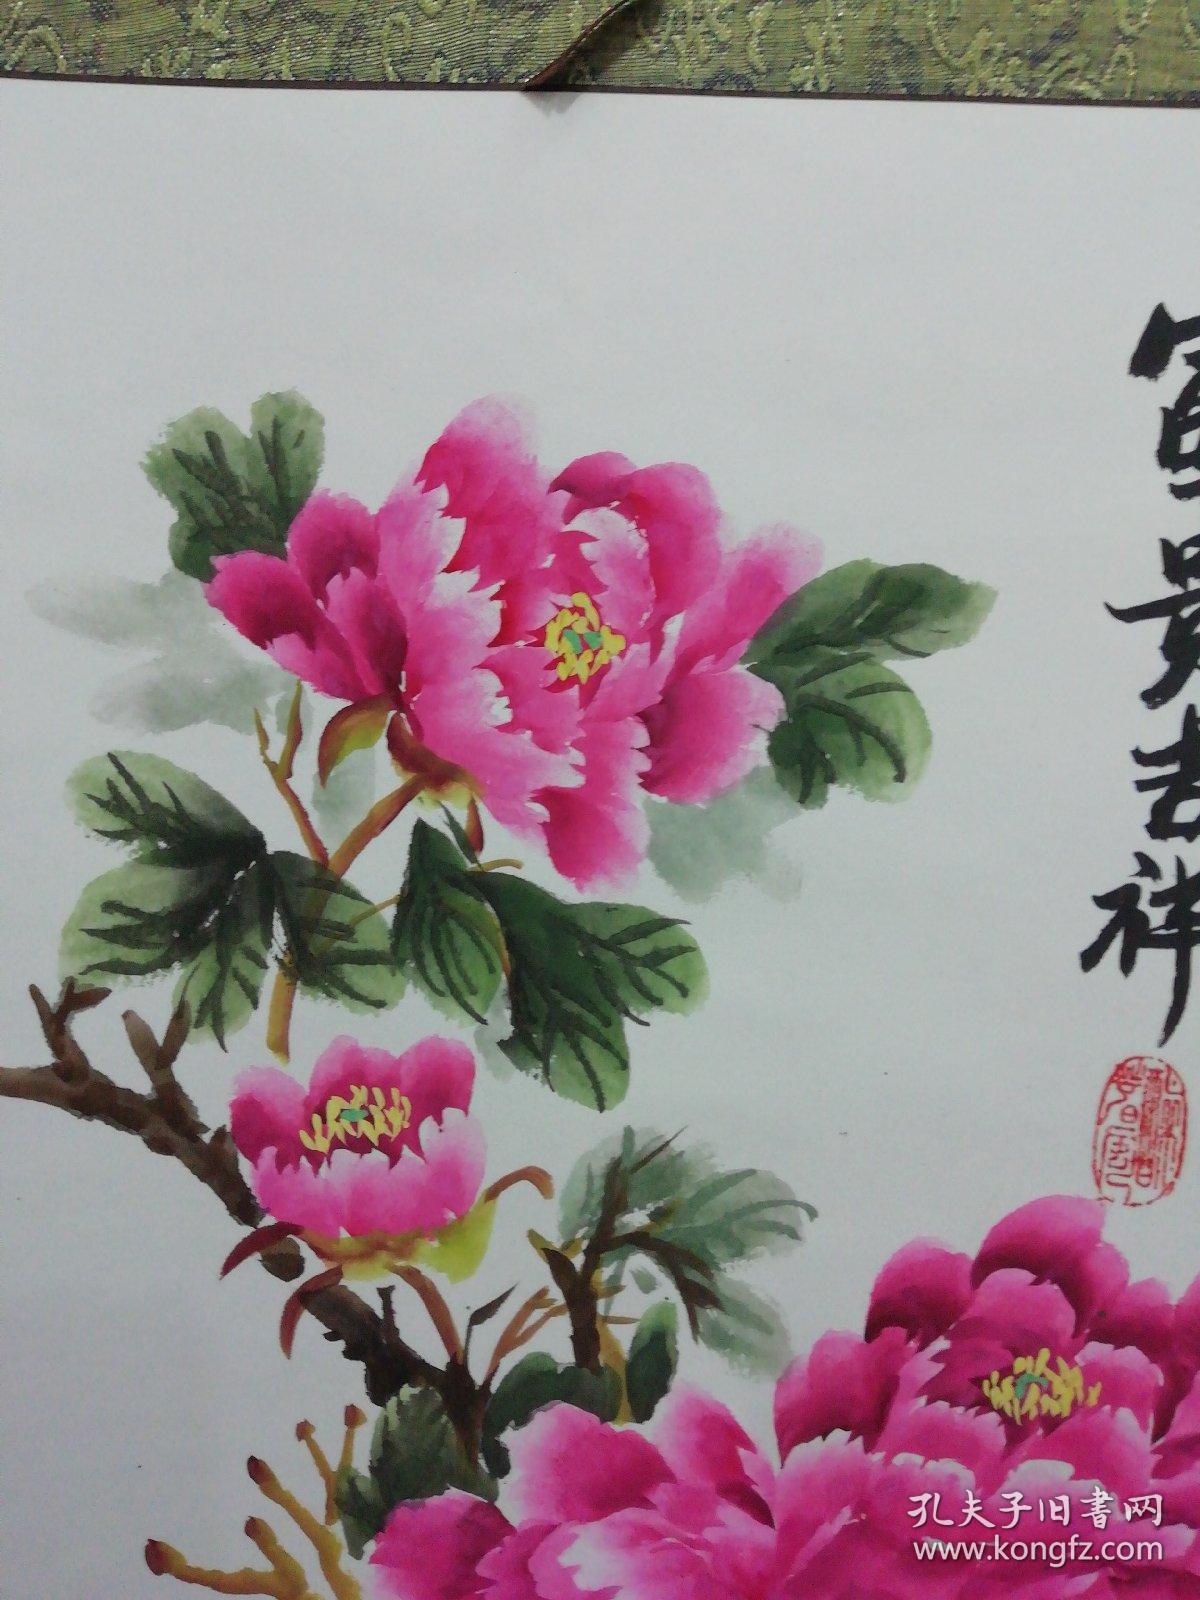 富贵吉祥
孔夫子旧書网
www.kongfz.com